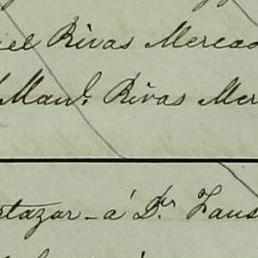 el Rivas Mercad
Man.l Rivas Mer
rtazar - á D.n Faus